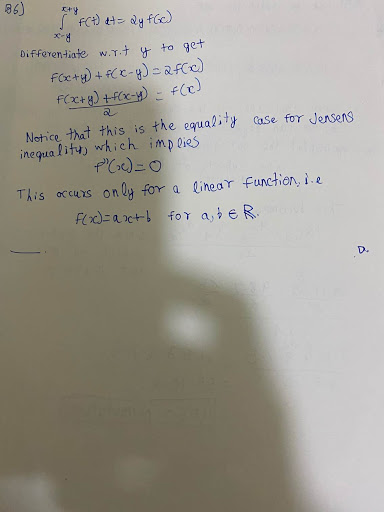 86)
x+y
∫ f(t) dt = 2y f(x)
x-y
Differentiate w.r.t y to get
f(x+y) + f(x-y) = 2f(x)
f(x+y) + f(x-y) / 2 = f(x)
Notice that this is the equality case for Jensens
inequality, which implies
f''(x) = 0
This occurs only for a linear function, i.e
f(x) = ax+b for a, b ∈ R.
D.